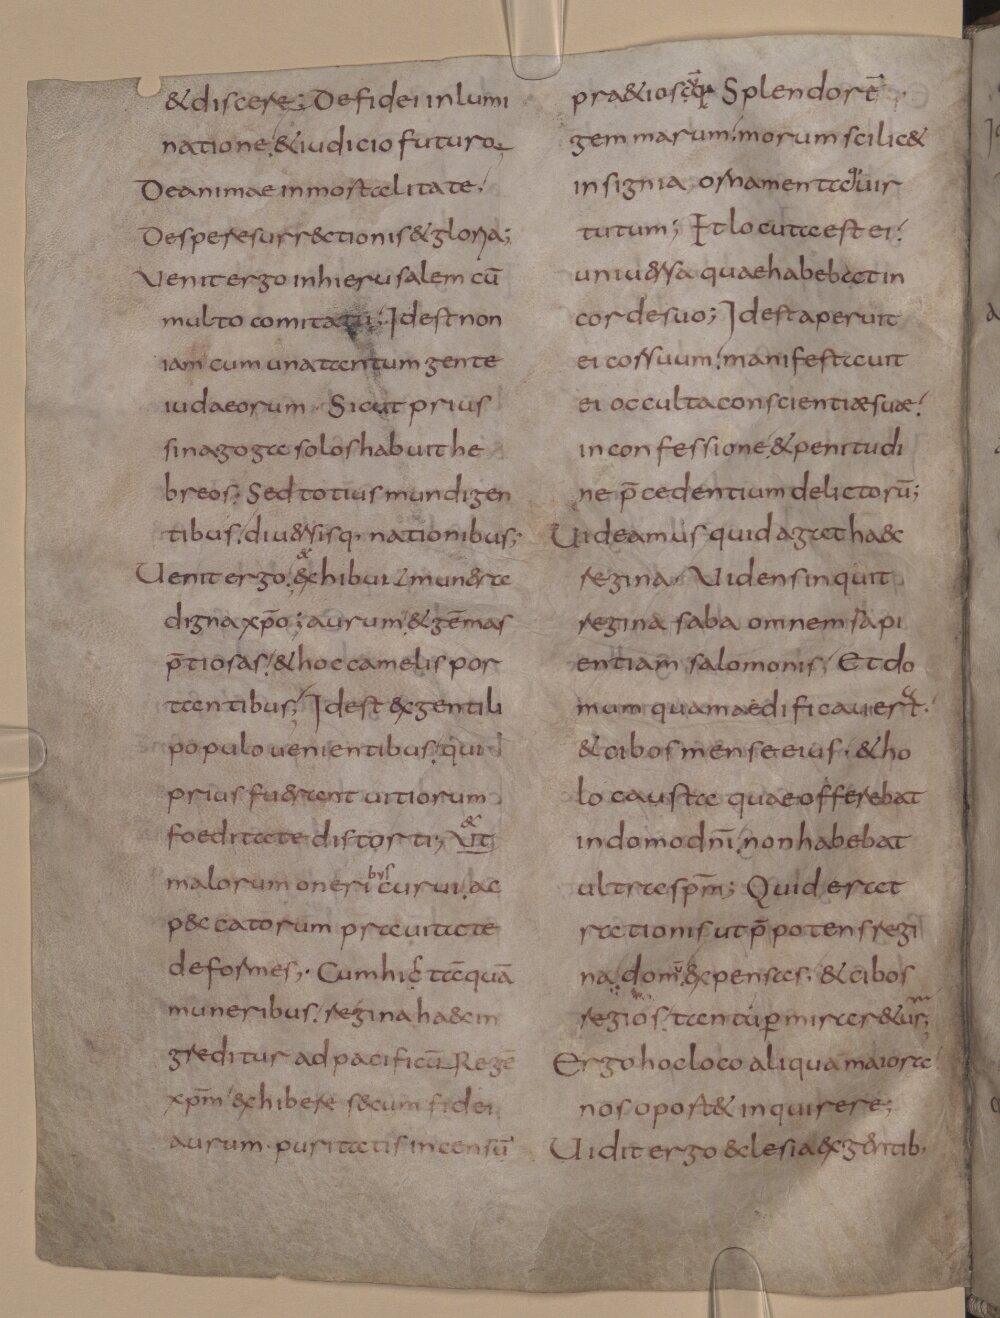 &discere; Defidei inlumi
natione,&iudicio futuro.
Deanimae inmortalitate.
Desperesurr&ctionis&gloria;
Venit ergo inhierusalem cū
multo comitatu; Idest non
iam cum una tantum gente
iudaeorum. Sicut prius
sinagoga solos habuit he
breos. Sed totius mundi gen
tibus, diu&rsisq. nationibus;
Uenit ergo. & exhibuit mun&ra
digna xp̄o; aurum,&gēmas
p̄tiosas,&hoc camelis por
tantibus; Idest exgentili
populo uenientibus, qui
prius fu&rant uitiorum
foeditate distorti; & ut
malorum oneribus curui. ac
p&ccatorum prauitate
deformes; Cum his tāquā
muneribus. regina ha&c in
greditur ad pacificū Regē
xp̄m exhibere s&cum fidei
aurum. puritatis incensū
pr&ios Splendorē
gemmarum. morum scilic&
insignia ornamentaq, uir
tutum; Et locuta est ei.
uniu&rsa quae habebat in
corde suo; Idest aperuit
ei cor suum, manifestauit
ei occulta conscientiæ suæ,
in confessione,&penitudi
ne p̄cedentium delictorū;
Uideamus quid agat ha&c
regina. Videns inquit
regina saba omnem sapi
entiam salomonis, Et do
mum quam aedificauerat.
&cibos mensæ eius. &ho
locausta quae offerebat
in domo dn̄i, non habebat
ultra sp̄m; Quid erat
rationis ut p̄potens regi
na, dom' expensas. &cibos
regios, tantū p mirar&ur;
Ergo hoc loco aliqua maiora
nos oport& inquirere;
Uidit ergo &clesia ex g&ntib.